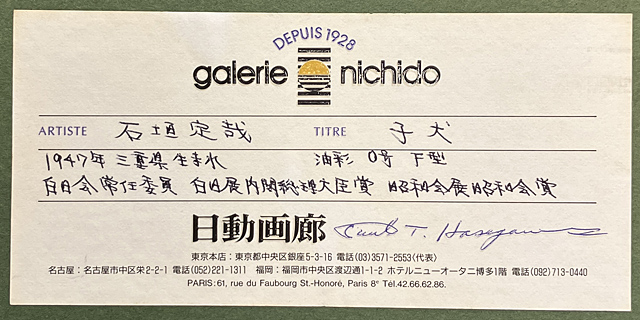 DEPUIS 1928
galerie nichido
ARTISTE 石垣定哉 TITRE 子犬
1947年 三重県生まれ 油彩 0号 F型
白日会常任委員 白日展内閣総理大臣賞 昭和会展昭和会賞
日動画廊
東京本店:東京都中央区銀座5-3-16 電話(03)3571-2553〈代表〉
名古屋:名古屋市中区栄2-2-1 電話(052)221-1311 福岡:福岡市中央区渡辺通1-1-2 ホテルニューオータニ博多1階 電話(092)713-0440
PARIS:61, rue du Faubourg St.-Honoré, Paris 8ᵉ Tél.42.66.62.86.